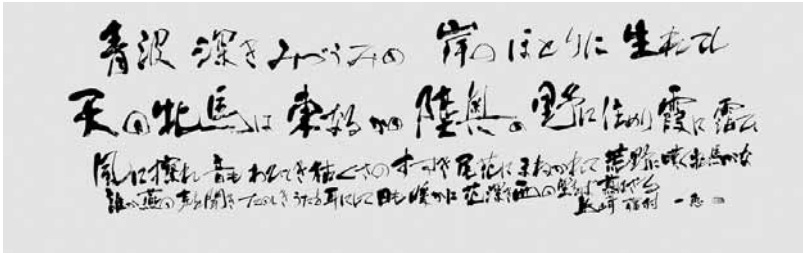 青波深きみづうみの 岸のほとりに生れてし
天の牝馬は東なるかの陸奥の野に住めり霞に霑ひ
風に擦れ音もわびしき枯くさのすすき尾花にまねかれて荒野に嘆く牝馬かな
誰か燕の声を聞きたのしきうたを耳にして日も暖かに花深き西の